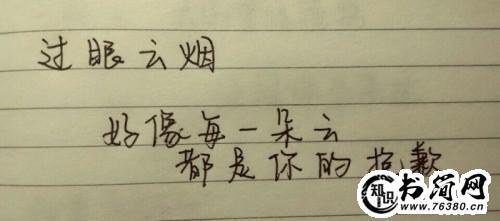 过眼云烟
好像每一朵云
都是你的抱歉
知识 书简网
www.76380.cn